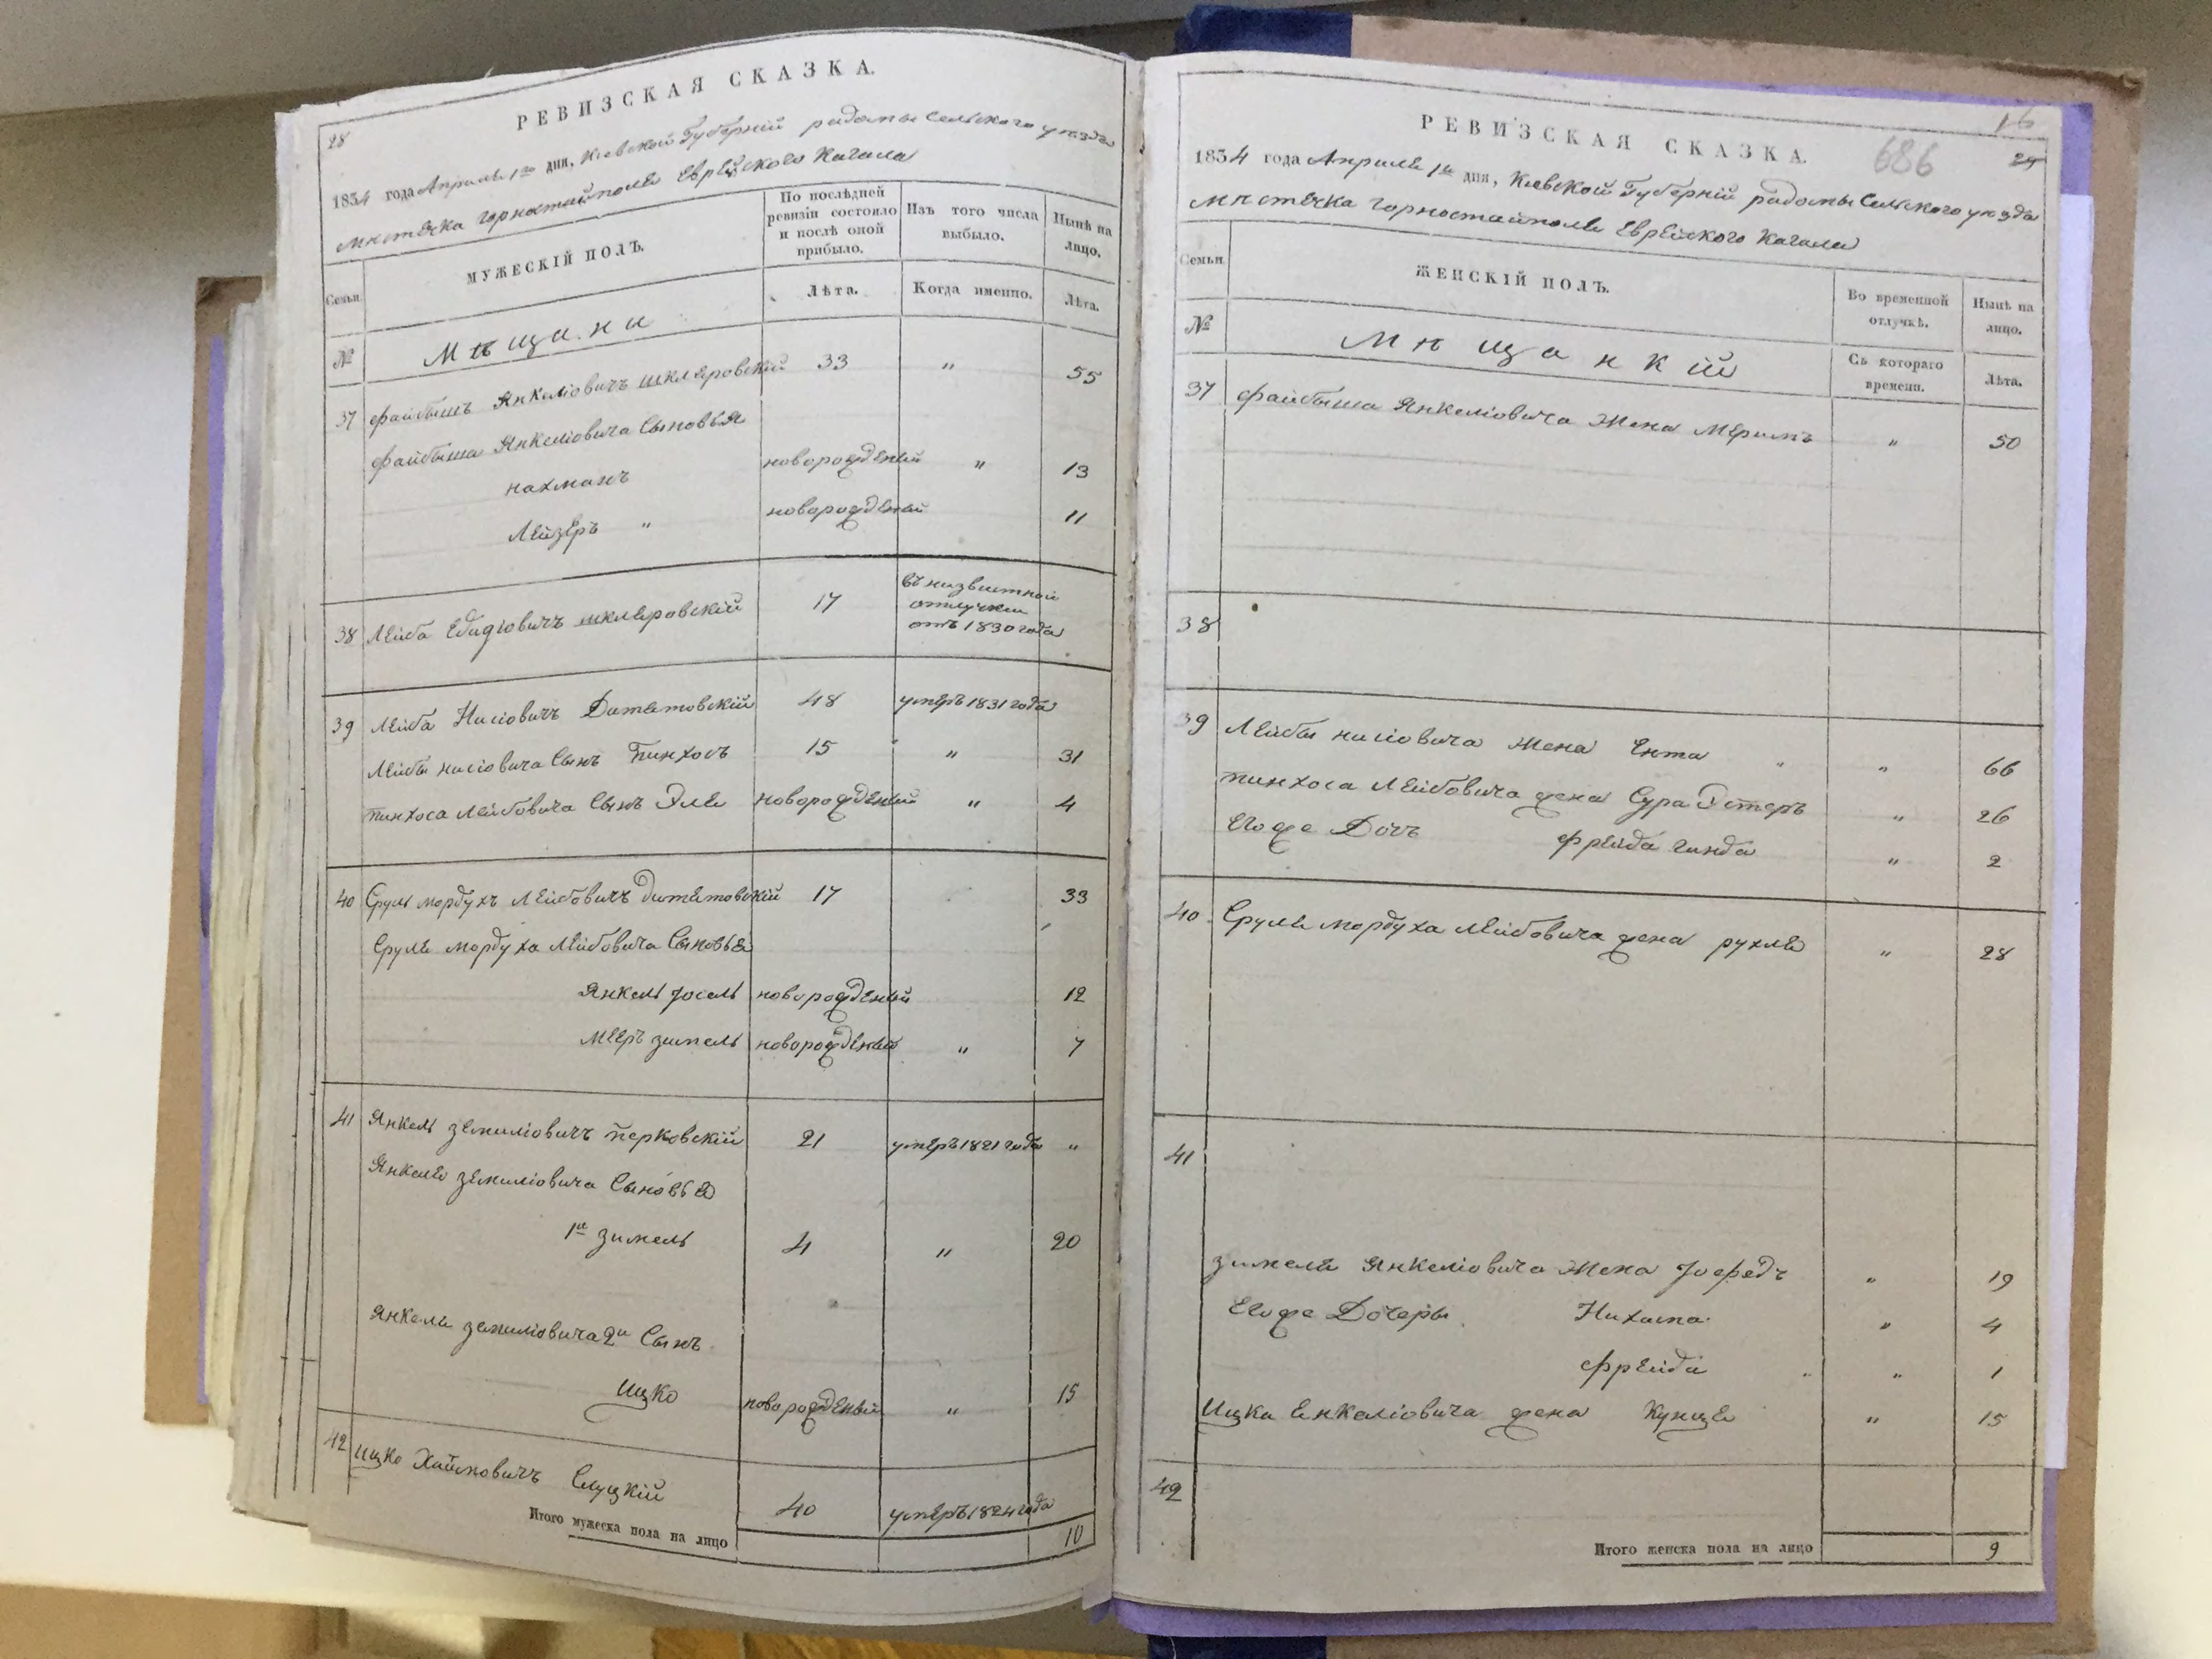 28
РЕВИЗСКАЯ СКАЗКА.
1834 года Апреля 1го дня, Киевской Губерній радомысельского уезда
мѣстечка горностайполя Еврейского Кагала
Семьи.
МУЖЕСКІЙ ПОЛЪ.
По послѣдней ревизіи состояло и послѣ оной прибыло.
Изъ того числа выбыло.
Нынѣ на лицо.
№
Лѣта.
Когда именно.
Лѣта.
Мѣщани
37 файбишъ Янкеліовичъ шкляровскій 33 " 55
файбиша Янкеліовича Сыновья
нахманъ новорожденый " 13
Лейзеръ " новорожденый 11
38 Лейба Ебидіовичъ шкляровскій 17 въ неизвестной
отлучки
отъ 1830 года
39 Лейба Нисіовичъ Дитятовскій 48 умеръ 1831 года
Лейбы нисіовича Сынъ Пинхосъ 15 " 31
пинхоса Лейбовича Сынъ Эля новорожденый " 4
40 Сруль мордухъ Лейбовичъ дитятовскій 17 33
Сруля мордуха Лейбовича Сыновья
Янкель Йосель новорожденый 12
Мееръ зимель новорожденый " 7
41 Янкель земиліовичъ перковскій 21 умеръ 1821 года "
Янкеля земиліовича Сыновья
1й зимель 4 " 20
Янкеля земиліовича 2й Сынъ
Ицко новорожденый " 15
42 Ицко Хаймовичъ Слуцкій 40 умеръ 1824 года
Итого мужеска пола на лицо 10
16
686
29
РЕВИЗСКАЯ СКАЗКА.
1834 года Апреля 1го дня, Киевской Губерній радомысельского уезда
мѣстечка горностайполя Еврейского Кагала
Семьи.
ЖЕНСКІЙ ПОЛЪ.
Во временной отлучкѣ.
Нынѣ на лицо.
№
Съ котораго времени.
Лѣта.
Мѣщанкій
37 файбиша Янкеліовича Жена Меримъ " 50
38
39 Лейбы нисіовича Жена Ента " 66
пинхоса Лейбовича жена Сура Эстеръ " 26
Егоже Дочъ фрейда гинда " 2
40 Сруля мордуха Лейбовича жена рухля " 28
41
зимеля Янкеліовича Жена " 19
Егоже Дочеры Нихама " 4
фрейда " 1
Ицка Енкеліовича жена Кунця " 15
42
Итого женска пола на лицо 9